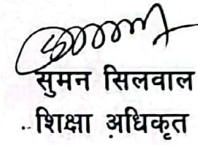 सुमन सिलवाल
शिक्षा अधिकृत